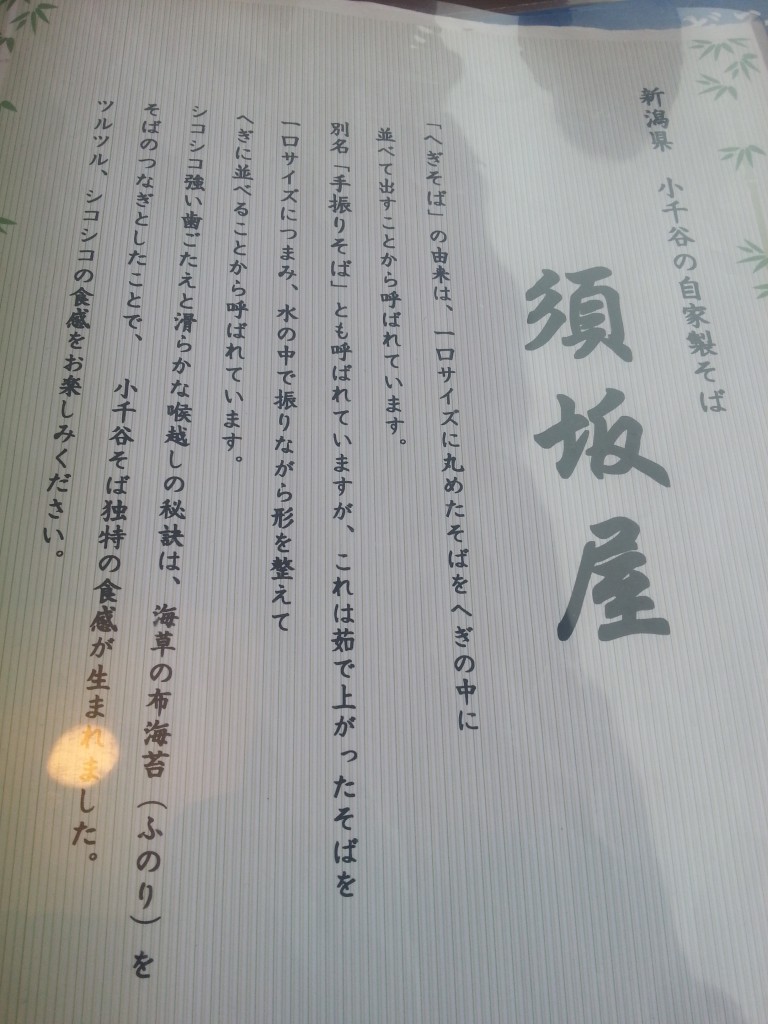 新潟県 小千谷の自家製そば
須坂屋
「へぎそば」の由来は、一口サイズに丸めたそばをへぎの中に
並べて出すことから呼ばれています。
別名「手振りそば」とも呼ばれていますが、これは茹で上がったそばを
一口サイズにつまみ、水の中で振りながら形を整えて
へぎに並べることから呼ばれています。
シコシコ強い歯ごたえと滑らかな喉越しの秘訣は、海草の布海苔（ふのり）を
そばのつなぎとしたことで、 小千谷そば独特の食感が生まれました。
ツルツル、シコシコの食感をお楽しみください。